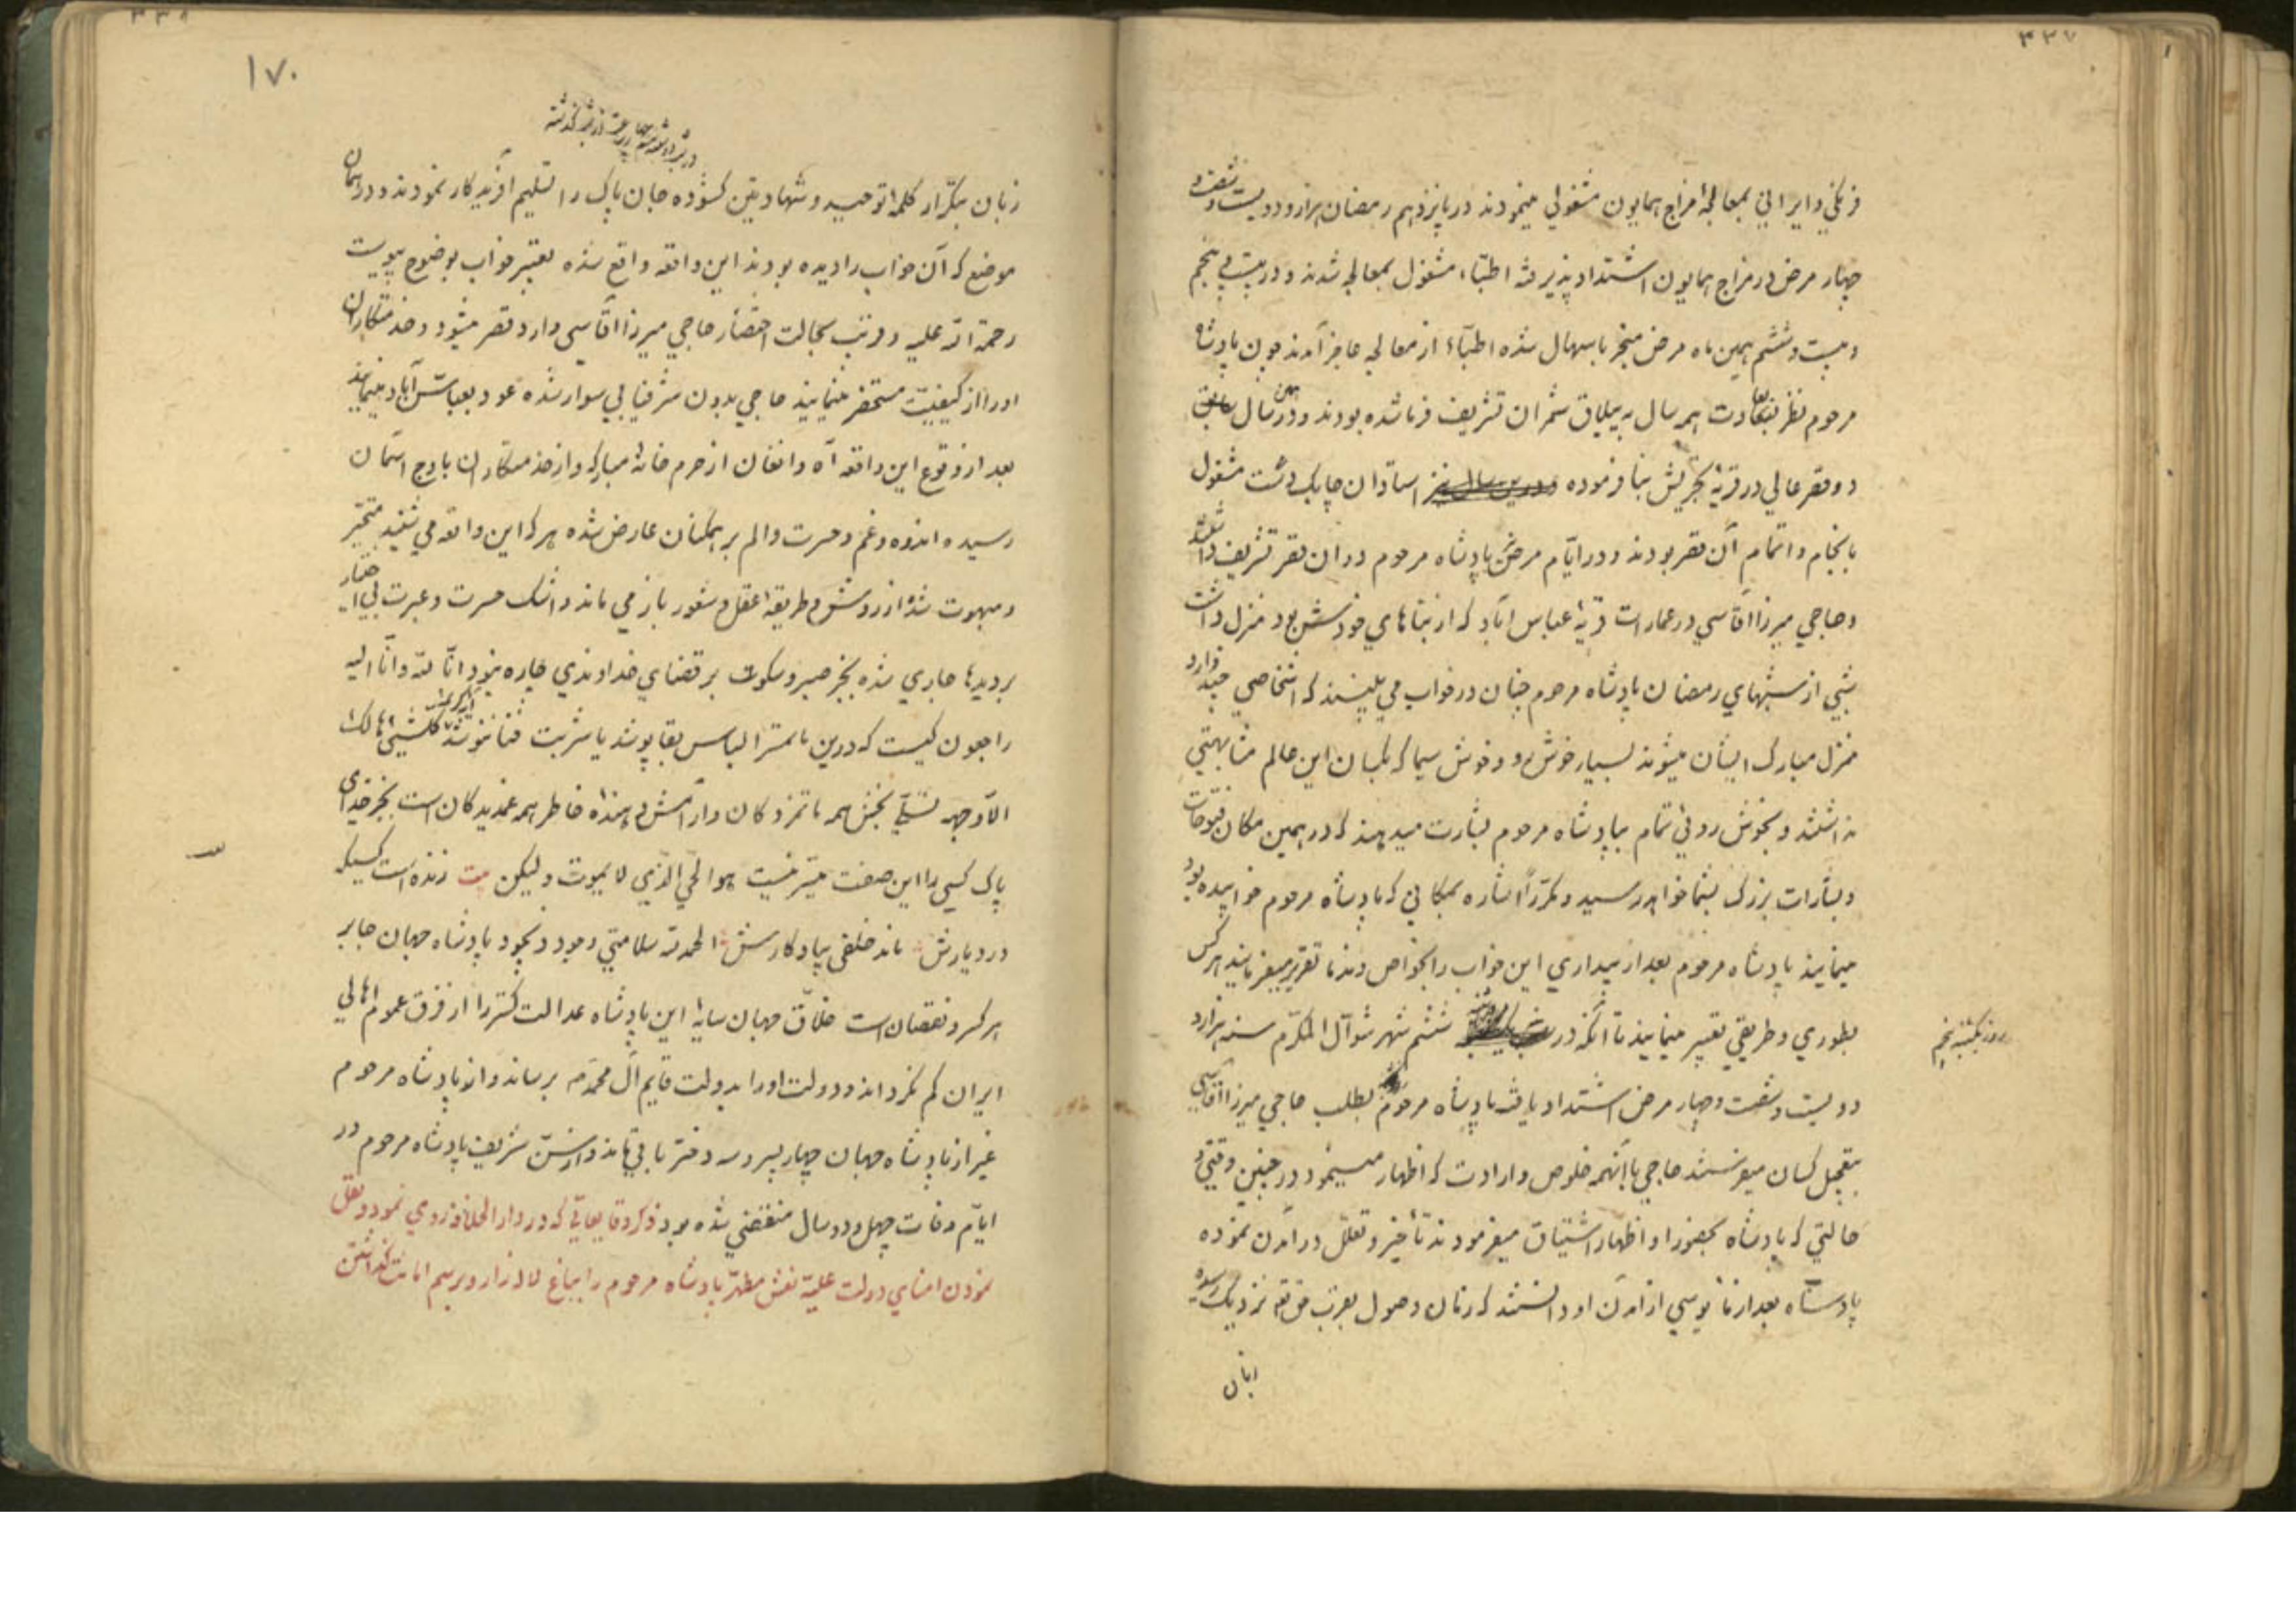 ۳۳۷
فرنگی و ایرانی بمعالجهٔ مزاج همایون مشغولی مینمودند در پانزدهم رمضان هزار و دویست و شصت و
چهار مرض در مزاج همایون اشتداد پذیرفته اطبّاء مشغول بمعالجه شدند و در بیست و پنجم
و بیست و ششم همین ماه مرض منجر باسهال شده اطبّاء از معالجه عاجز آمدند چون پادشاه
مرحوم نظر بعادت همه سال به ییلاق شمران تشریف فرما شده بودند و در سال سابق
دو قصر عالی در قریهٔ تجریش بنا فرموده و درین سال نیز استادان چابک دست مشغول
بانجام و اتمام آن قصر بودند و در ایّام مرض پادشاه مرحوم در آن قصر تشریف داشتند
و حاجی میرزا آقاسی در عمارات قریهٔ عباس آباد که از بناهای خودش بود منزل داشت
شبی از شبهای رمضان پادشاه مرحوم چنان در خواب می بینند که اشخاصی چند وارد
منزل مبارک ایشان میشوند بسیار خوش رو و خوش سیما که بکسان این عالم مشابهتی
نداشتند و بخوش روئی تمام بپادشاه مرحوم بشارت میدهند که در همین مکان فتوحات
و بشارات بزرگ بشما خواهد رسید و مکرّراً اشاره بمکانی که پادشاه مرحوم خوابیده بود
مینمایند پادشاه مرحوم بعد از بیداری این خواب را بخواص و ندما تقریر میفرمایند هر کس
بطوری و طریقی تعبیر مینمایند تا آنکه در ششم شهر شوّال المکرّم سنه هزار و
روز یکشنبه پنجم
دویست و شصت و چهار مرض اشتداد یافته پادشاه مرحوم بطلب حاجی میرزا آقاسی
بتعجیل کسان میفرستند حاجی با آنهمه خلوص و ارادت که اظهار مینمود در چنین وقتی و
حالتی که پادشاه بحضور او اظهار اشتیاق میفرمودند تأخیر و تعلّل در آمدن نموده
پادشاه بعد از مأیوسی از آمدن او دانستند که زمان وصول بقرب حق نزدیک رسیده
زبان
۳۳۸
۱۷۰
در شب سه شنبه چهار ساعت از شب گذشته
زبان بتکرار کلمهٔ توحید و شهادتین گشوده جان پاک را تسلیم آفریدگار نمودند و در همان
موضع که آن خواب را دیده بودند این واقعه واقع شده تعبیر خواب بوضوح پیوست
رحمة الله علیه و در شب بحالت احتضار حاجی میرزا آقاسی وارد قصر میشود و خدمتکاران
او را از کیفیّت مستحضر مینمایند حاجی بدون شرفیابی سوار شده عود بعباس آباد مینماید
بعد از وقوع این واقعه آه و افغان از حرم خانهٔ مبارکه و از خدمتکاران باوج آسمان
رسیده اندوه و غم و حسرت و الم بر همکنان عارض شده هر که این واقعه می شنید متحیّر
و مبهوت شده از روش و طریقهٔ عقل و شعور باز می ماند و اشک حسرت و عبرت بی اختیار
بر دیدها جاری شده بجز صبر و سکوت بر قضای خداوندی چاره نبود انّا لله و انّا الیه
راجعون کیست که درین ماتمسرا لباس بقا پوشد یا شربت فنا ننوشد کلّ شیئی هالک
الّا وجهه تسلّی بخش همه ماتم زدکان و آرامش دهنده خاطر همه غمدیدکان است بجز خدای
پاک کسی را این صفت میسّر نیست هو الحیّ الذی لا یموت ولیکن بیت زنده است کسیکه
در دیارش ماند خلفی بیادکارش الحمد لله سلامتی وجود ذیجود پادشاه جهان جابر
هر کسر و نقصان است خلّاق جهان سایهٔ این پادشاه عدالت گستر را از فرق عموم اهالی
ایران کم نگرداند و دولت او را بدولت قایم آل محمّد برساند و از پادشاه مرحوم
غیر از پادشاه جهان چهار پسر و سه دختر باقی ماند و از سنّ شریف پادشاه مرحوم در
ایّام وفات چهل و دو سال منقضی شده بود ذکر وقایعاتی که در دار الخلافه روی نمود و نقل
نمودن امنای دولت علیّه نعش مطهّر پادشاه مرحوم را بباغ لاله زار و برسم امانت گذاشتن